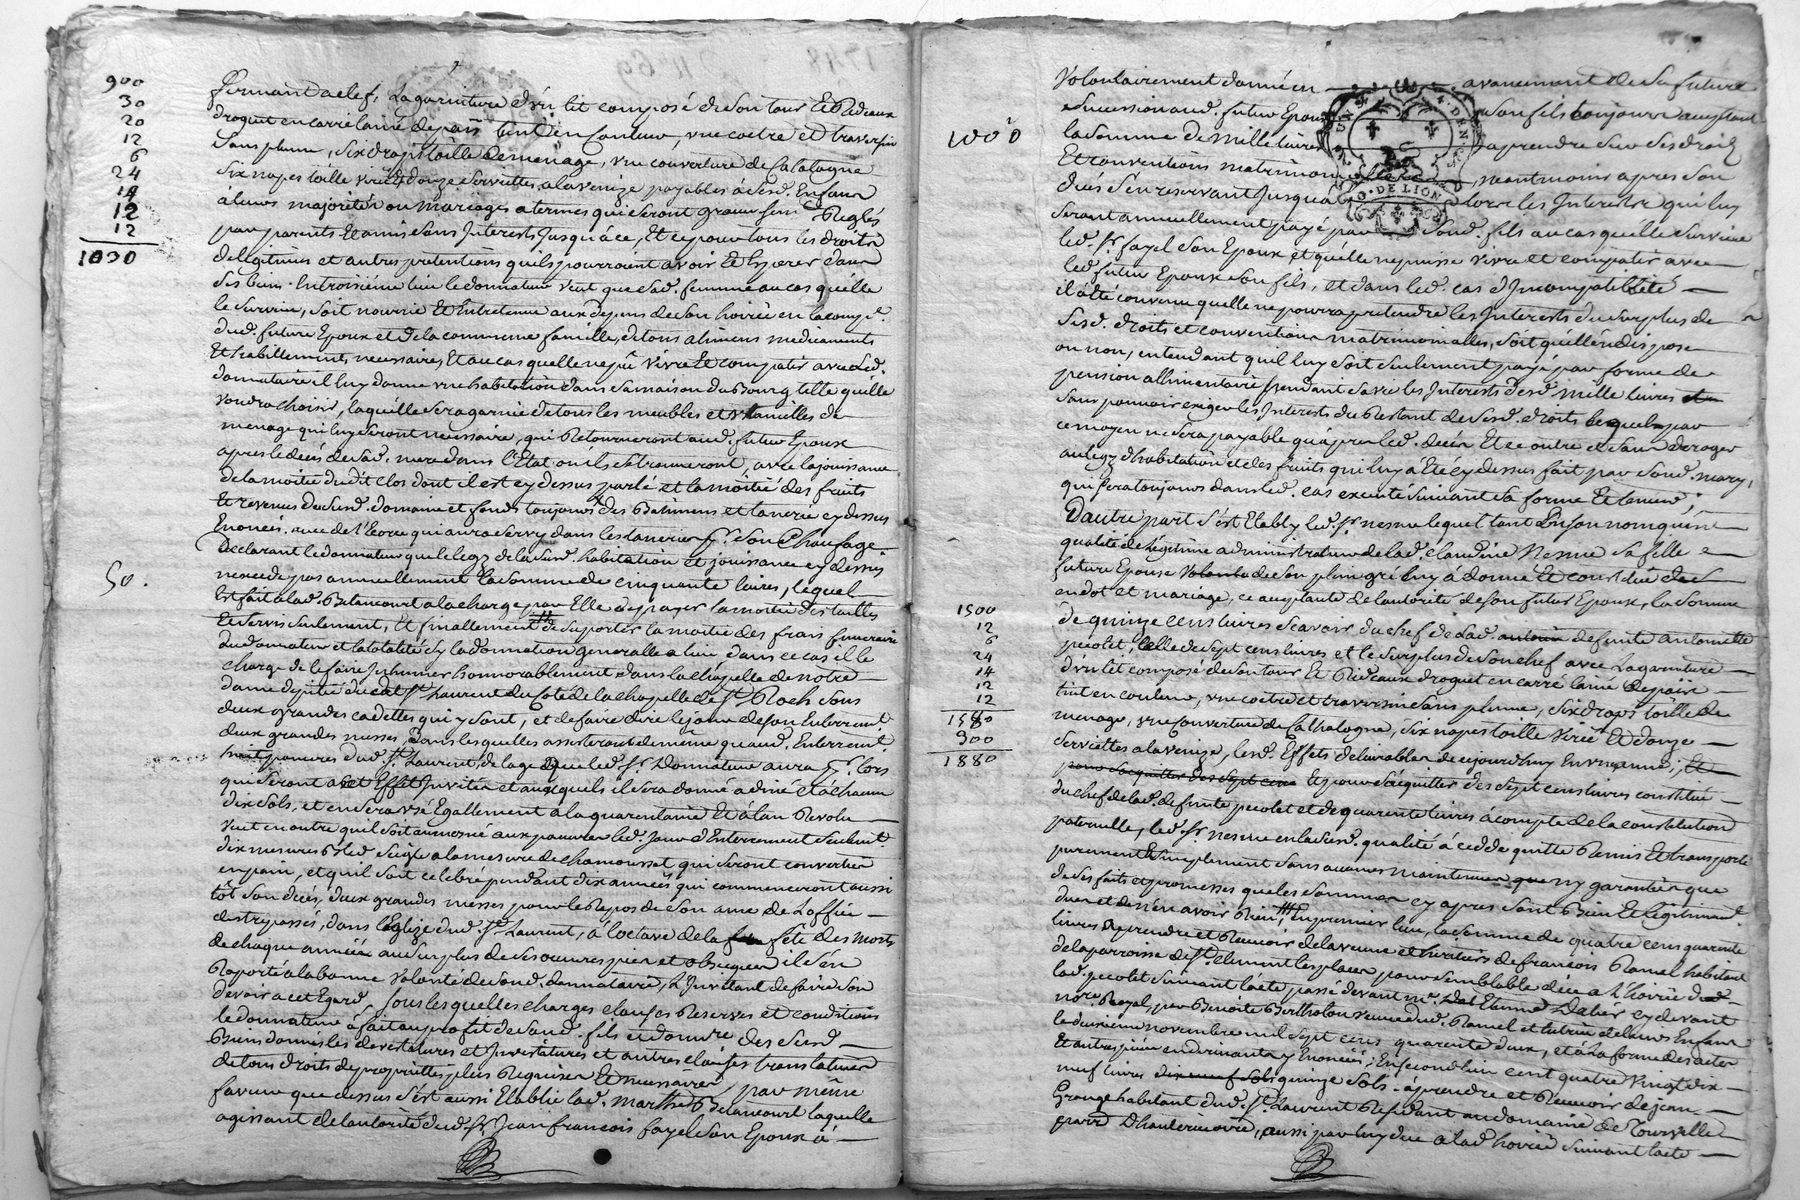 900
30
20
12
6
24
14
12
12
1030
fermant a clef, la garniture d'un lit composé de son tour et Rideaux
droguet en carré lainé de païs teint en couleur, une coetre et traversin
sans plume, six draps toille de menage, une couverture de Catalogne
six napes toille et douze serviettes a la venize payables a sesd. Enfans
à leurs majorités ou mariages a termes qui seront Reglés
par parents et amis sans Interests jusqu'à ce, Et ce pour tous les droits
de legitimes et autres pretentions qu'ils pourroient avoir et Esperer dans
ses biens. En troisième lieu le donnateur veut que sad. femme au cas qu'elle
le survive, soit nourrie et Entretenue aux depens de son hoirie en la comp.e
dud. futur Epoux et de la commune famille, de tous alimens medicaments
Et habillements necessaires, Et au cas quelle ne pû vivre Et compatir avec led.
donnataire il luy donne une habitation dans sa maison du Bourg telle qu'elle
voudra choisir, laquelle sera garnie de tous les meubles et ustancilles de
menage qui luy seront necessaire, qui Retourneront aud. futur Epoux
apres le décés de sad. mere dans l'Etat ou ils se trouveront, avec la jouissance
de la moitié du dit clos dont il est cy dessus parlé et la moitié des fruits
Et revenus dud. domaine et fonds toujours des Batimens et tanerie cy dessus
Enoncés. avec de l'Ecorce qui aura servy dans les taneries p.r son Chaufage
Declarant le donnateur que le legz de la susd. habitation et jouissance cy dessus
50.
n'excede pas annuellement la somme de cinquante livres, lequel
Est fait a lad. Belancourt a la charge par Elle de payer la moitié des tailles
Et servis seulement, Et finallement de suporter la moitié des frais funeraires
du donnateur et la totalité sy la donnation generalle a lieu dans ce cas il le
charge de le faire Inhumer honnorablement dans la chapelle de notre
dame de pitié dud. St Laurent du coté de la chapelle de St Roch sous
deux grandes cadettes qui y sont, et de faire dire le jour de son Enterrem.t
deux grandes messes, dans lesquelles assisteront de même qu'aud. Enterrem.t
pauvres dud. St Laurent, de l'age que led. Sr Donnateur aura p.r lors
qui seront a cet Effet Invités et auxquels il sera donné a diné et à chacun
dix sols, et en sera usé Egallement a la quarentaine Et à l'an Revolu
veut en outre qu'il soit aumosné aux pauvres led. jour d'Enterrement seulement
dix mesures Bled seigle a la mesure de chamousset qui seront converties
en pain, et qu'il soit celebré pendant dix années qui commenceront aussi
tôt son décés, deux grandes messes pour le Repos de son ame de l'office
des trepassés, dans l'Eglize dud. St Laurent, à l'octave de la fête des morts
de chaque année au surplus de ses œuvres pies et obseques il s'en
Raporte à la bonne volonté de sond. donnataire, L'Invittant de faire son
devoir a cet Egard. Sous lesquelles charges clauses Reserves et conditions
le donnateur à fait au profit de sond. fils et donn.re des susd.
Biens donnés les devestatures et Investitures et autres clauses translatives
de tous droits de proprietté plus Requises Et necessaires par même
faveur que dessus s'est aussi Etablie lad. Marthe Belancourt laquelle
agissant de l'autorité dud. Sr Jean françois fayel son Epoux à
Volontairement donné en avancement de sa future
succession aud. futur Epoux son fils toujours acceptant
1000
la somme de mille livres a prendre sur ses droits
Et conventions matrimon neantmoins apres son
décés s'en reservant jusqu'à lors les Interests qui luy
seront annuellement payé par sond. fils au cas qu'elle survive
led. Sr fayel son Epoux et qu'elle ne puisse vivre et compatir avec
led. futur Epoux son fils, et dans led. cas d'Incompatibilité
il a été convenu quelle ne pourra pretendre les Interests du surplus de
sesd. droits et conventions matrimonialles, soit qu'elle en dispose
ou non, entendant qu'il luy soit seulement payé par forme de
pension allimentaire pendant sa vie les Interests desd. mille livres
sans pouvoir exiger les Interests du Restant de sesd. droits lequel par
ce moyen ne sera payable qu'apres led. decés Et ce outre et sans deroger
au legz d'habitation et des fruits qui luy à Eté cy dessus fait par sond. mary,
qui sera toujours dans led. cas executé suivant sa forme Et teneur;
D'autre part s'est Etably led. Sr nesme lequel tant En son nom qu'en
qualité de legitime administrateur de lad. claudine Nesme sa fille
future Epouse de son plein gré luy à donné Et constitué
en dot et mariage, ce acceptante de l'autorité de son futur Epoux, la somme
1500
12
6
24
14
12
12
1580
300
1880
de quinze cens livres scavoir du chef de lad. defunte antoinette
pecolet, celle de sept cens livres et le surplus de son chef avec la garniture
d'un lit composé de son tour Et Rideaux droguet en carré lainé de païs
teint en couleur, une coetre et traversin sans plume, six draps toille de
menage, une couverture de Cathalogne, six napes toille Et douze
serviettes a la venize, lesd. Effets delivrables de ce jourd'huy En un année; Et
pour s'acquitter des sept cens Et pour s'acquitter des sept cens livres constitué
du chef de lad. defunte pecolet et de quarente livres à compte de la constitution
paternelle, led. Sr nesme en la susd. qualité à cedde quitte Remis Et transporté
purement et simplement sans aucunes maintenue ny garentie que
de ses faits et promesses que les sommes cy apres sont Bien Et legitimem.t
dues et de n'en avoir Rien; En premier lieu, la somme de quatre cens quarente
livres a prendre et Recevoir de la veuve et heritiers de françois Ramel habitant
de la parroisse de St Clement les places pour semblable due a L'hoirie de
lad. pecolet suivant l'acte passé devant me. Etienne Dalier cy devant
no.re Royal, par Benoite Bertholon veuve dud. Ramel et tutrice de leurs Enfans
le deuxieme novembre mil sept cens quarente deux, et à la forme des actes
Et autres pièces en derivants y Enoncés; En second lieu cent quatre vingt dix
neuf livres dix neuf sols quinze sols a prendre et Recevoir de jean
Grange habitant dud. St Laurent Residant au domaine de Tourville
parr. D'hauterivoire, aussi par luy due a lad. hoirie suivant l'acte